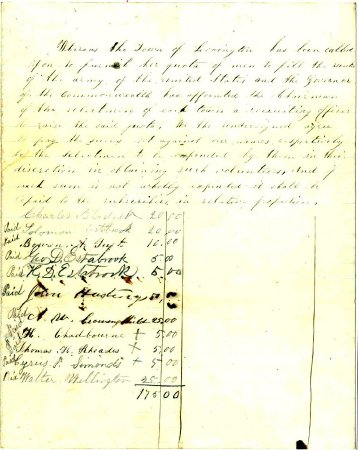 Whereas the Town of Lexington has been called
upon to furnish her quota of men to fill the ranks
of the army of the United States, and the Governor
of the Commonwealth has appointed the Chairman
of the selectmen of each town a recruiting officer
to raise the said quota, We the undersigned agree
to pay the sums set against our names respectively
to the selectmen to be expended by them in their
discretion in obtaining such volunteers, and if
such sum is not wholly expended it shall be
repaid to the subscribers in relative proportion.
Charles 20.00
Paid Solomon Estabrook 20.00
Paid 10.00
Paid Geo D. Estabrook 5.00
Paid K. D. Estabrook 5.00
Paid John Hastings
Paid A. W. Crowninshield 25.00
K. Chadbourne + 5.00
Thomas K. Rhoades + 5.00
Paid Cyrus P. Simonds + 5.00
Paid Walter Wellington 25.00
175.00